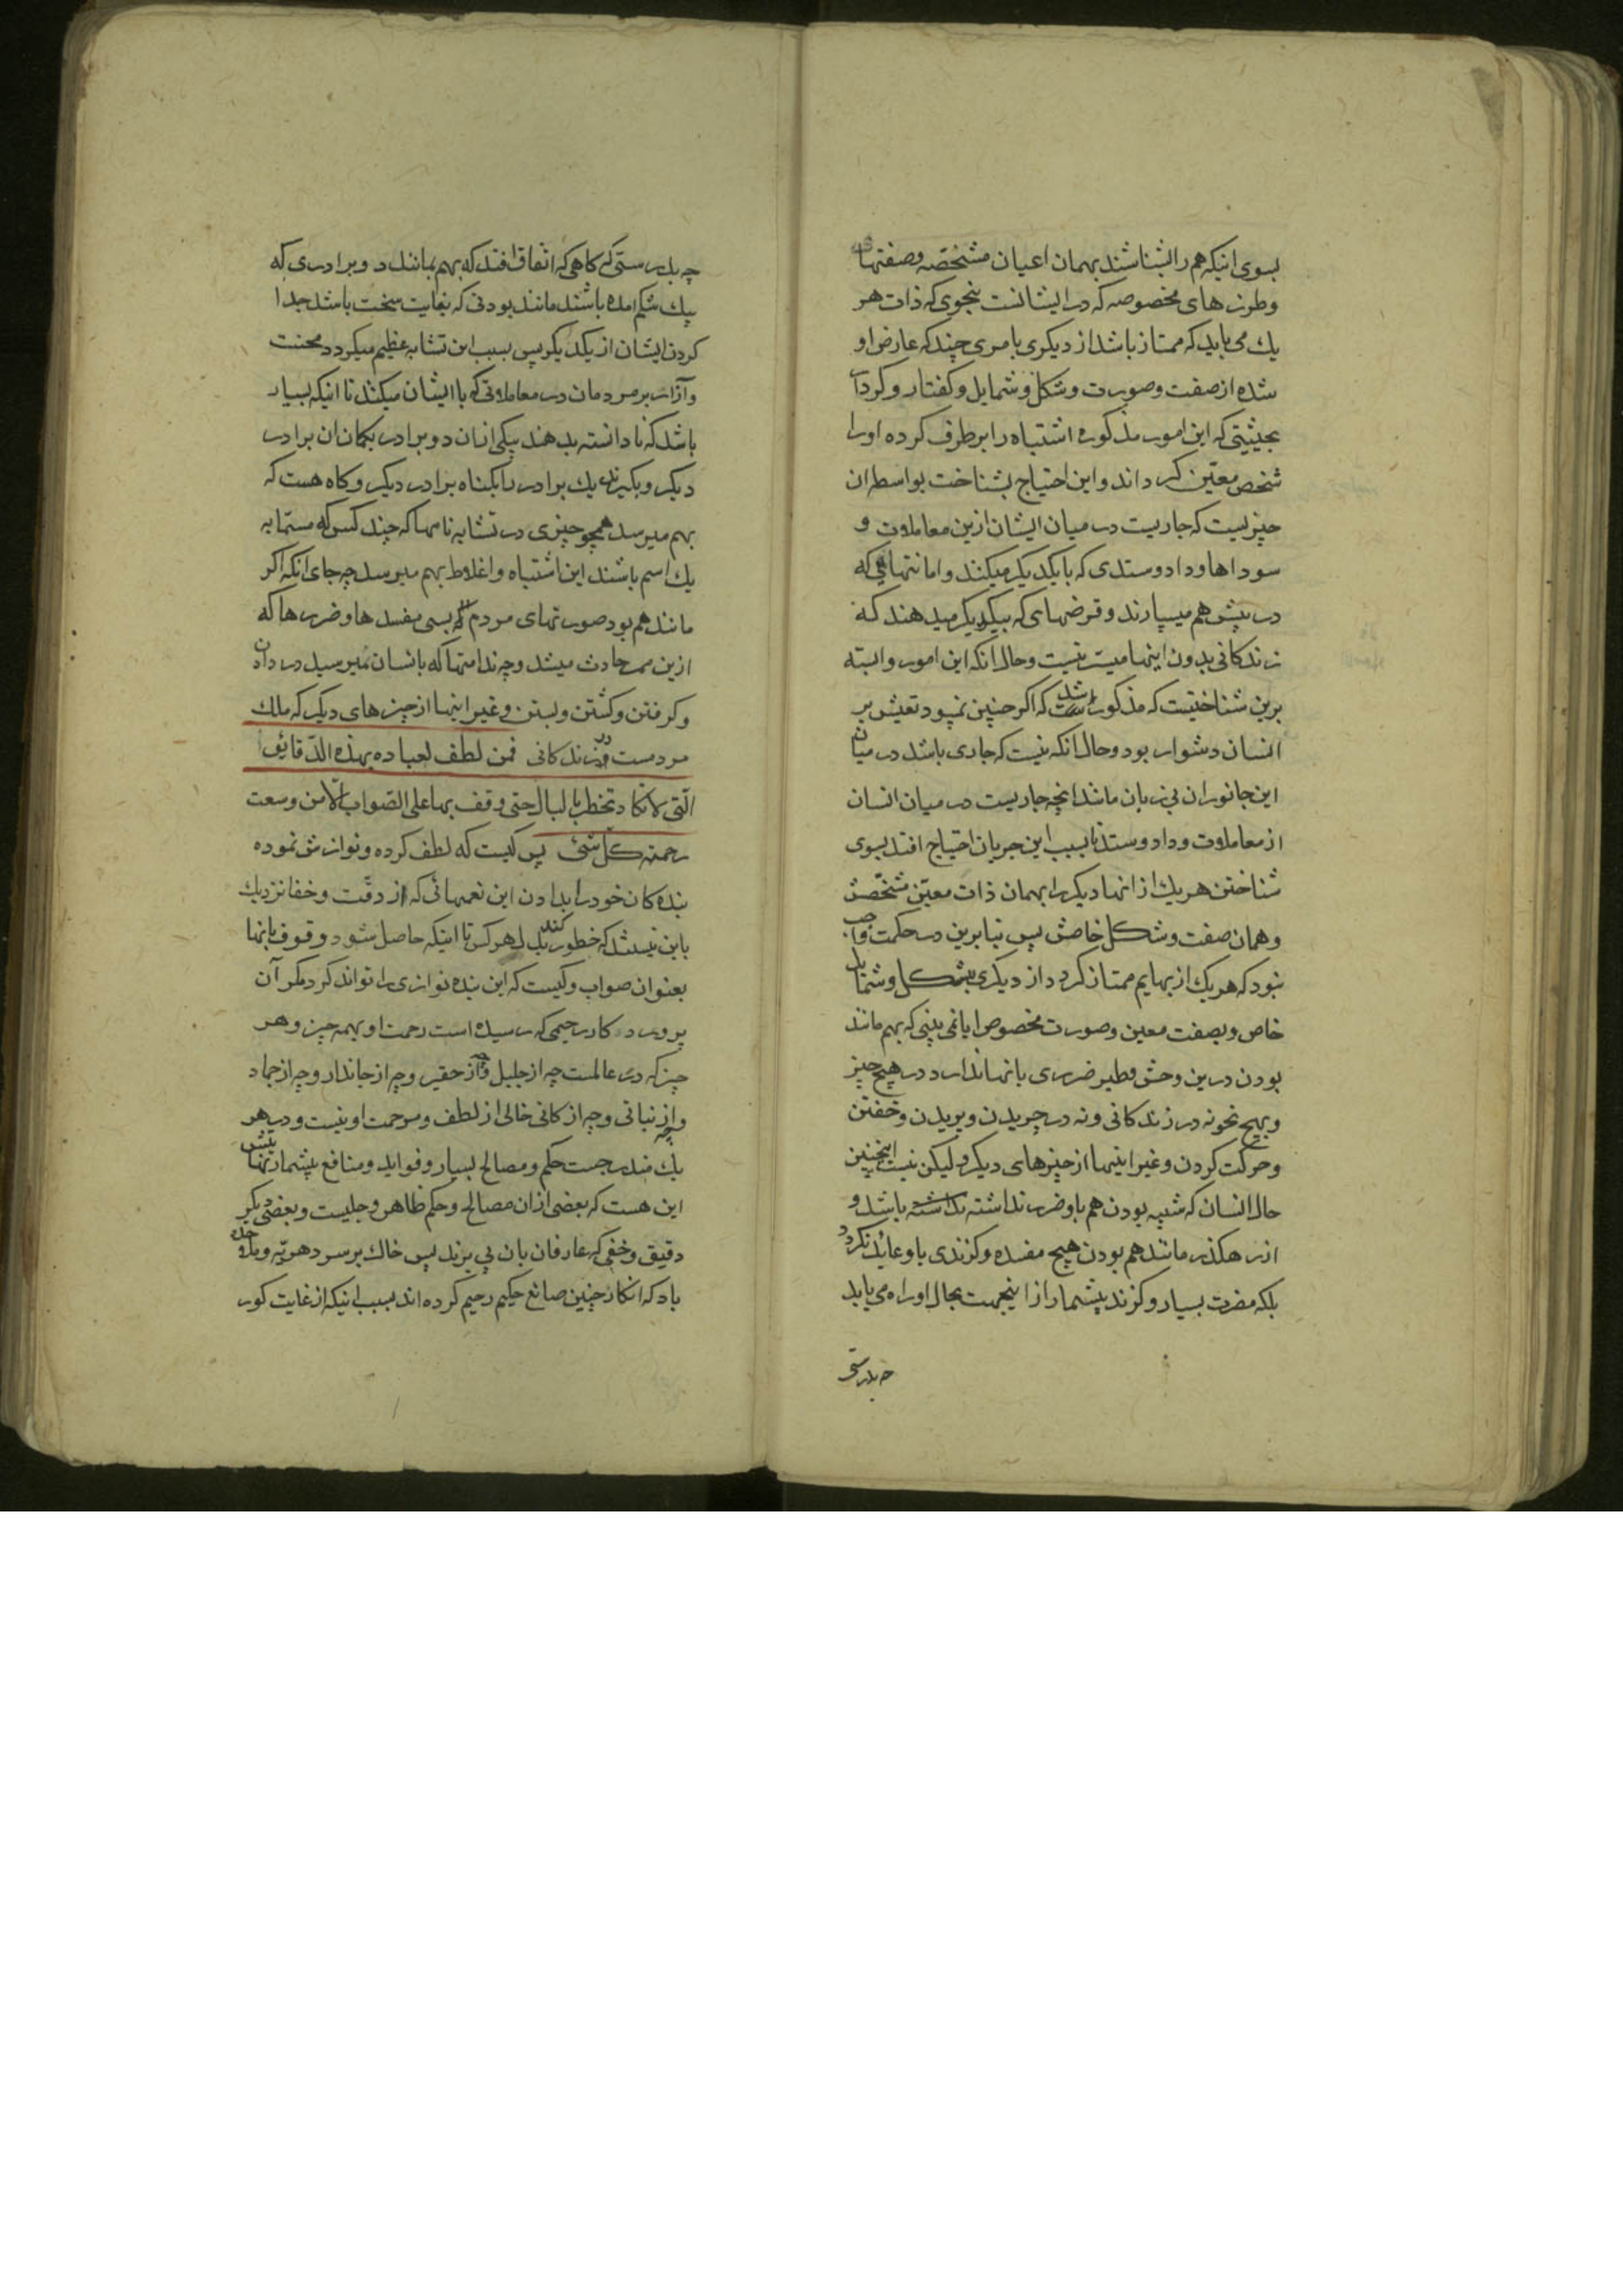 بسوی اینکه هم را بشناشند بهمان اعیان مشخصه و صفتها
و طورهای مخصوصه که در ایشانست بنحوی که ذات هر
یك می باید که ممتاز باشد از دیکری بامری چند که عارض او
شده از صفت و صورت و شکل و شمایل و کفتار و کردار
بحیثیتی که این امور مذکوره اشتباه را برطرف کرده او را
شخص معیّن کرداند و این احتیاج بشناخت بواسطه ان
چیزیست که جاریست در میان ایشان ازین معاملات و
سوداها و داد و ستدی که با یکدیکر میکنند و امانتهایی که
در پیش هم میسپارند و قرضهای که بیکدیکر میدهند که
زندکانی بدون اینها میسّر نیست و حال انکه این امور وابسته
برین شناختیست که مذکور شد که اکر چنین نمیبود تعیش بر
انسان دشوار بود و حال انکه نیست که جاری باشد در میان
این جانوران بی زبان مانند انچه جاریست در میان انسان
از معاملات و داد و ستد تا بسبب این جریان احتیاج افتد بسوی
شناختن هر یك از انها دیکر را بهمان ذات معیّن مشخّصش
و همان صفت و شکل خاصش پس بنا برین در حکمت واجب
نبود که هر یك از بهایم ممتاز کردد از دیکری بشکل و شمایل
خاص و بصفت معین و صورت مخصوص ایا نمی بینی که بهم مانند
بودن درین وحش و طیر ضرری بانها ندارد در هیچ چیز
و بهیچ نحو نه در زندکانی و نه در چریدن و پریدن و خفتن
و حرکت کردن و غیر اینها از چیزهای دیکر و لیکن نیست اینچنین
حال انسان که شبیه بودن هم باو ضرر نداشته باشد و
از رهکذر مانند هم بودن هیچ مفسده و کزندی باو عائد نکردد
بلکه مضرت بسیار و کزند بیشمار از اینجهت بحال او راه می یابد
چه بدرستی
چه بدرستی که کاهی که اتفاق افتد که بهم بمانند دو برادری که
بیك شکم امده باشند مانند بودنی که بغایت سخت باشد جدا
کردن ایشان از یکدیکر پس بسبب این تشابه عظیم میکردد محنت
و آزار بر مردمان در معاملاتی که با ایشان میکنند تا اینکه بسیار
باشد که نادانسته بدهند بیکی از ان دو برادر بکمان ان برادر
دیکر و بکیرند یك برادر را بکناه برادر دیکر و کاه هست که
بهم میرسد همچو چیزی در تشابه نامها که چند کس که مسمّا به
یك اسم باشند این اشتباه و اغلاط بهم میرسد چه جای انکه اکر
مانند هم بود صورتهای مردم که بسی مفسدها و ضررها که
ازین ممر حادث میشد و چه ندامتها که بانسان نمیرسید در دادن
و کرفتن و کشتن و بستن و غیر اینها از چیزهای دیکر که ملك
مردمست در زندکانی فمن لطف لعباده بهذه الدّقایق
الّتی لا تکاد تخطر بالبال حتی وقف بها علی الصّواب الّا من وسعت
رحمته کلّ شئ پس کیست که لطف کرده و نوازش نموده
بنده کان خود را بدادن این نعمهائی که از دقّت و خفا نزدیك
باین نیستند که خطور کند بدل هر کس تا اینکه حاصل شود وقوف بانها
بعنوان صواب و کیست که این بنده نوازی را تواند کرد مکر آن
پروردکار رحیمی که رسیده است رحمت او بهمه چیز و هر
چیز که در عالمست چه از جلیل و چه از حقیر و چه از جاندار و چه از جماد
و چه از نباتی و چه از کانی خالی از لطف و مرحمت او نیست و در هر
یك مندرجست حکم و مصالح بسیار و فواید و منافع بیشمار نهایتش
این هست که بعضی از ان مصالح و حکم ظاهر و جلیست و بعضی دیکر
دقیق و خفی که عارفان بان پی برند پس خاك بر سر دهریّه و ملاحده
باد که انکار چنین صانع حکیم رحیم کرده اند بسبب اینکه از غایت کور